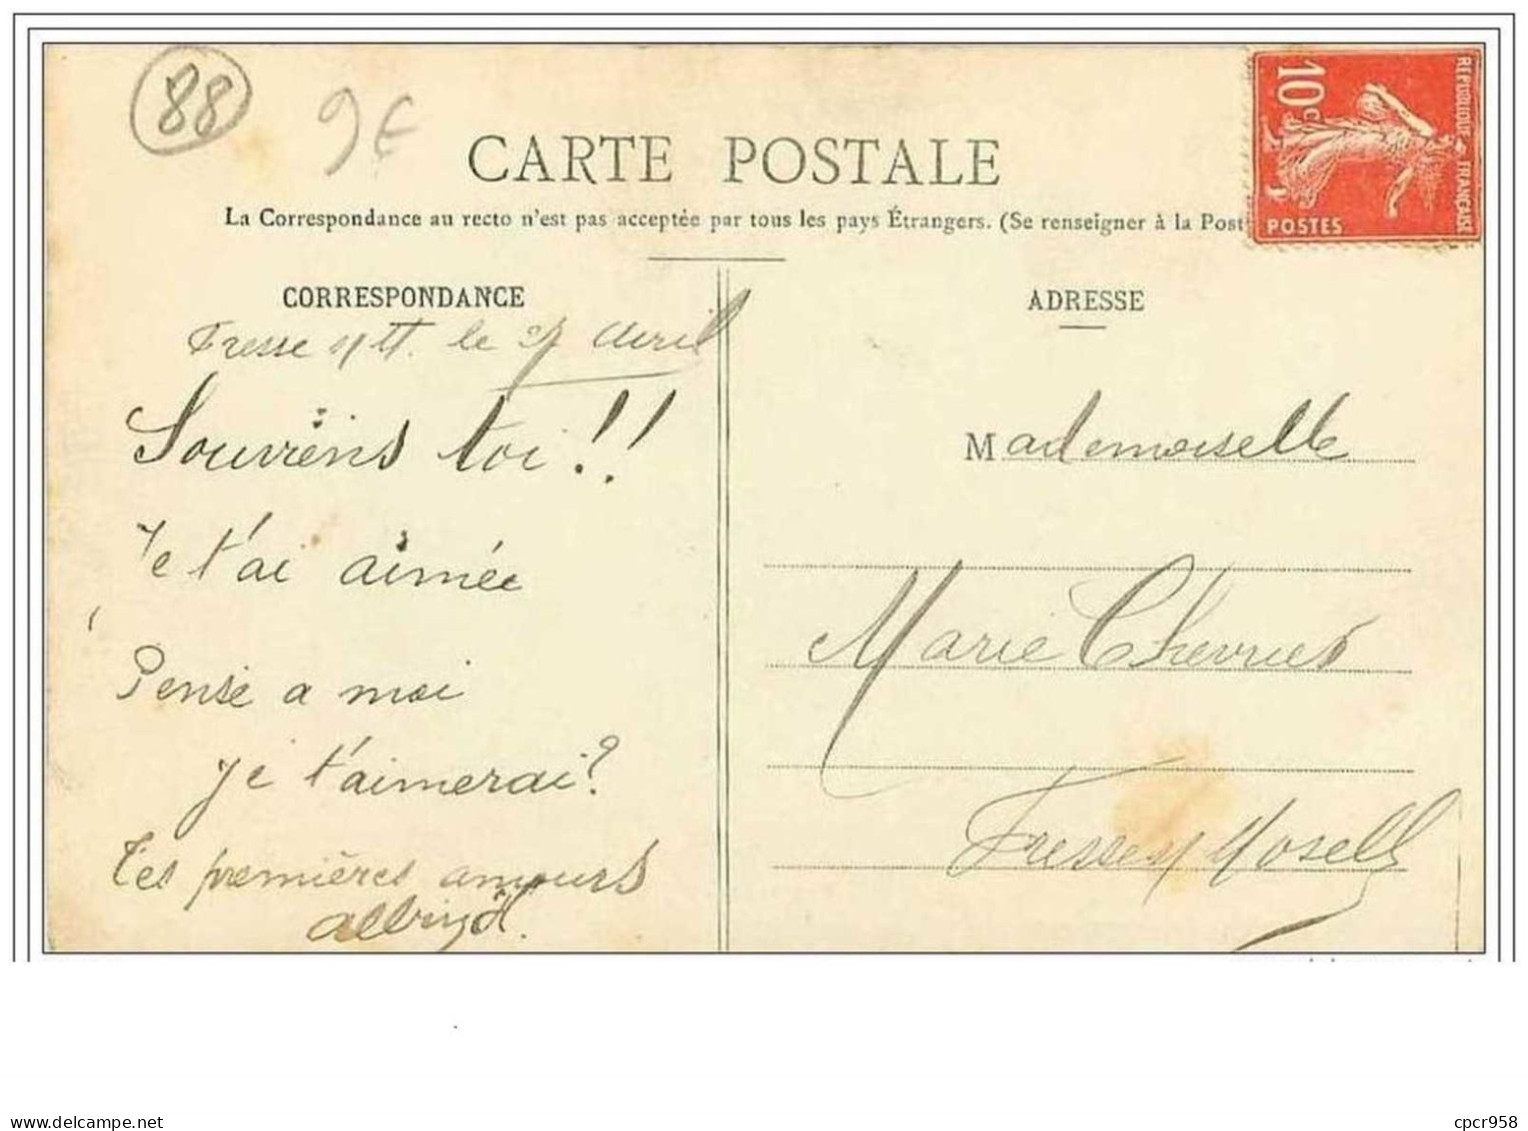 88
9€
CARTE POSTALE
La Correspondance au recto n'est pas acceptée par tous les pays Étrangers. (Se renseigner à la Post
10c
REPUBLIQUE FRANÇAISE
POSTES
CORRESPONDANCE
Fresse s/M. le Avril
Souviens toi!!
Je t'ai aimée
Pense a moi
je t'aimerai?
Tes premières amours
ADRESSE
Mademoiselle
Marie Chevrier
Fresse s/ Moselle
cpcr958